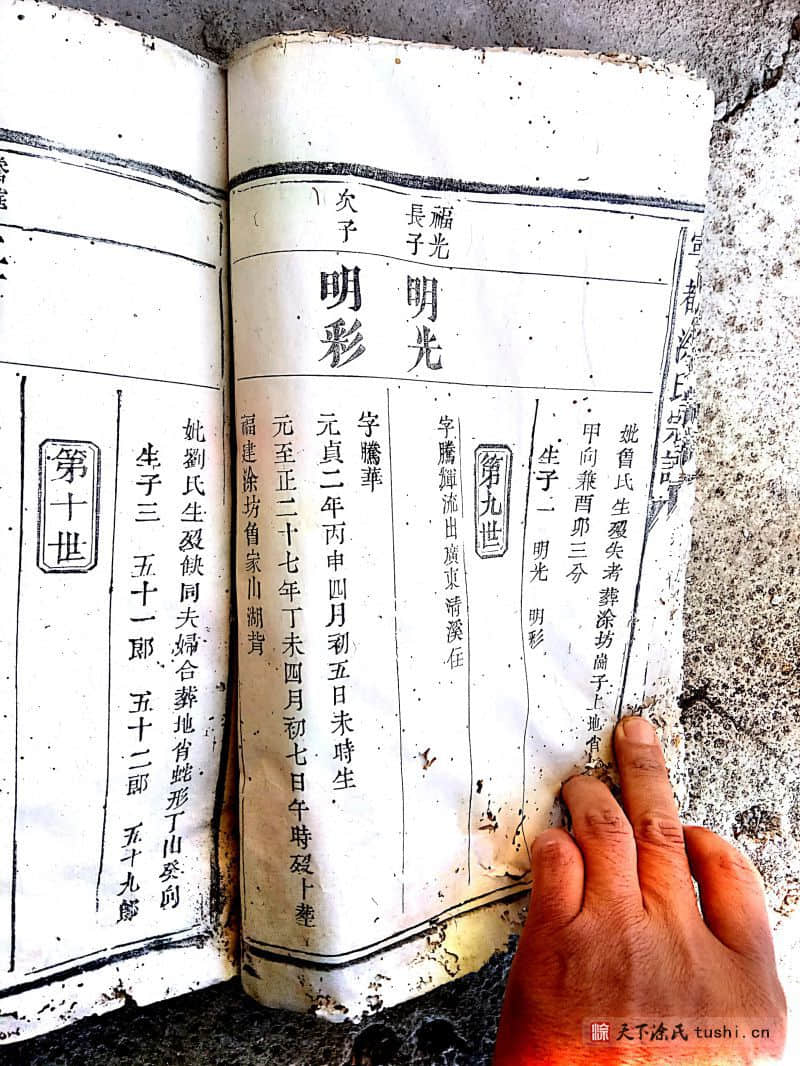 都涂氏宗譜
妣魯氏生歿失考葬涂坊崗子上地肖
甲向兼酉卯三分
生子一 明光 明彩
第九世
福光
長子
明光
字騰輝流出廣東清溪住
次子
明彩
字騰華
元貞二年丙申四月初五日未時生
元至正二十七年丁未四月初七日午時歿卜葬
福建涂坊魯家山湖背
妣劉氏生歿缺同夫婦合葬地肖蛇形丁山癸向
生子三 五十一郎 五十二郎 五十九郎
第十世
天下涂氏 tushi.cn